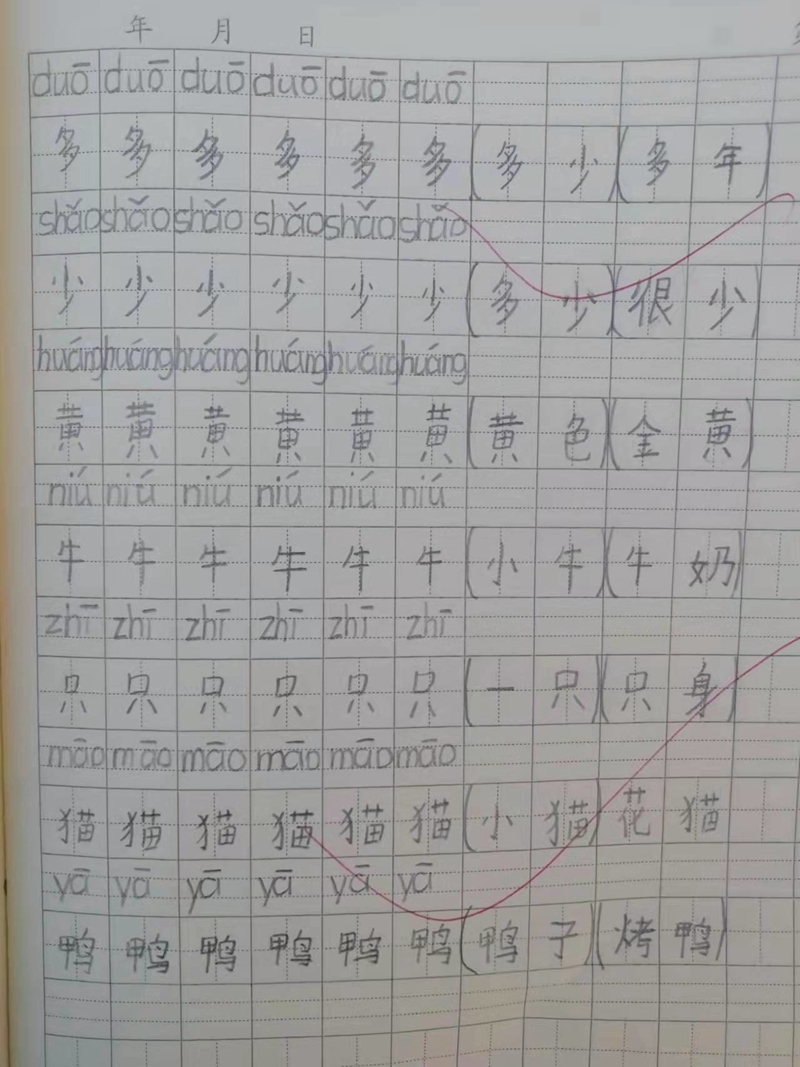 年 月 日
duō duō duō duō duō duō
多 多 多 多 多 多 (多 少)(多 年)
shǎo shǎo shǎo shǎo shǎo shǎo
少 少 少 少 少 少 (多 少)(很 少)
huáng huáng huáng huáng huáng huáng
黄 黄 黄 黄 黄 黄 (黄 色)(金 黄)
niú niú niú niú niú niú
牛 牛 牛 牛 牛 牛 (小 牛)(牛 奶)
zhī zhī zhī zhī zhī zhī
只 只 只 只 只 只 (一 只)(只 身)
māo māo māo māo māo māo
猫 猫 猫 猫 猫 猫 (小 猫) 花 猫
yā yā yā yā yā yā
鸭 鸭 鸭 鸭 鸭 鸭 (鸭 子)(烤 鸭)